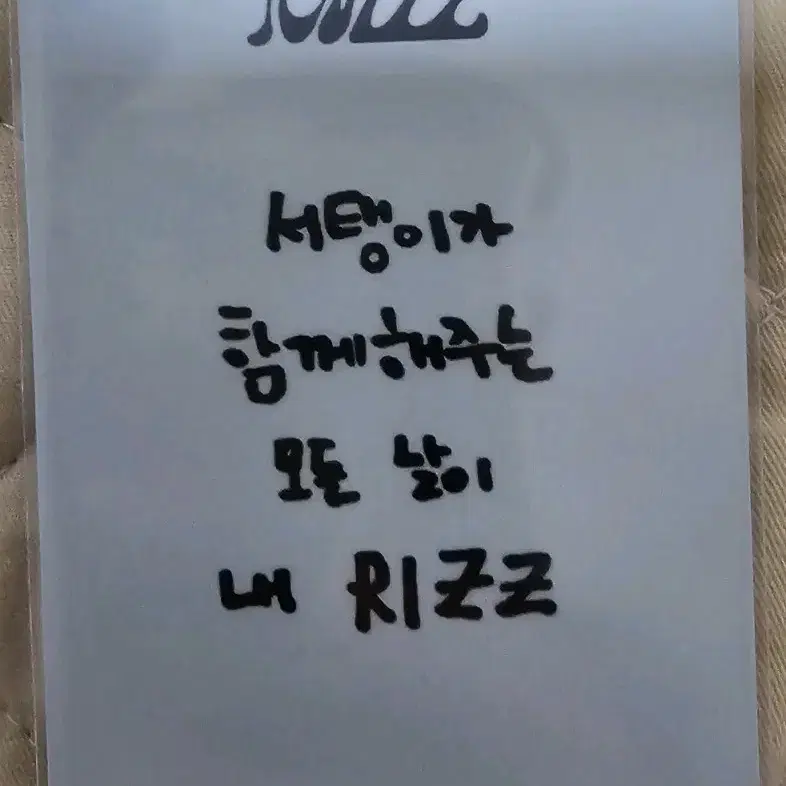 서탱이가
함께해주는
모든 날이
내 RIZZ